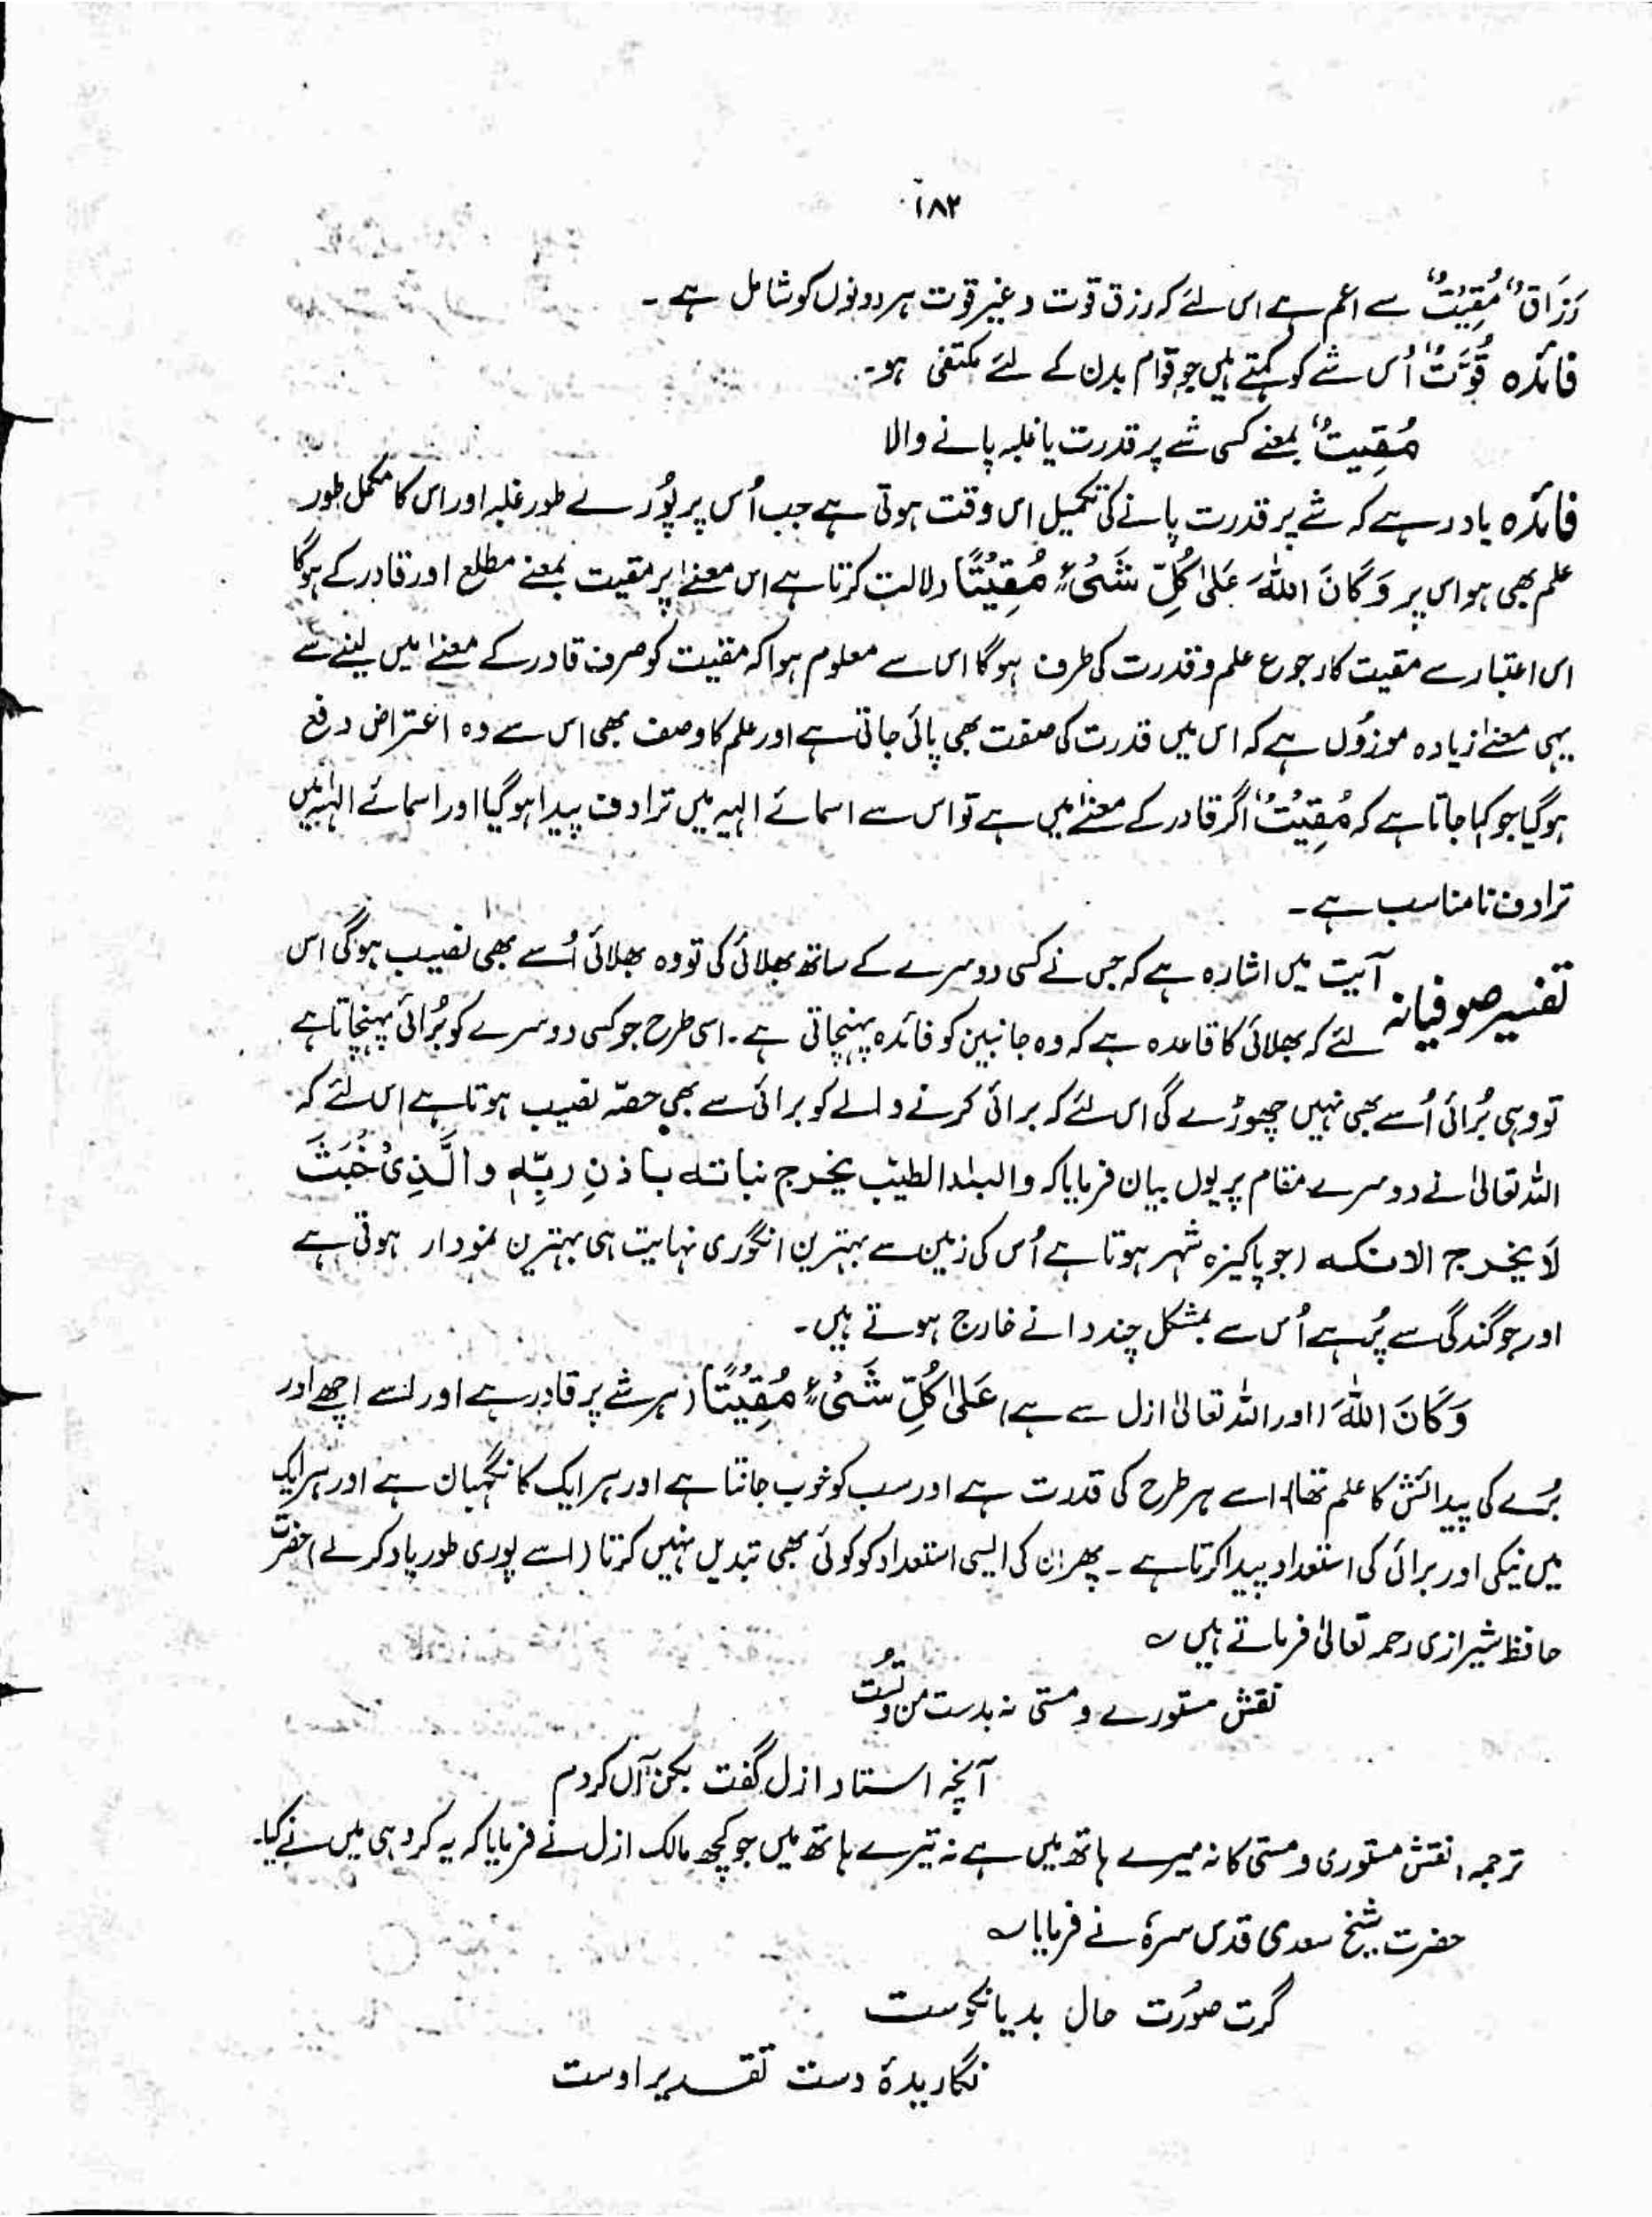 ۱۸۲
رَزَاقٌ مُقِیْتٌ سے اعم ہے اس لئے کہ رزق قوت و غیر قوت ہر دونوں کو شامل ہے ۔
فائدہ قُوْتٌ اُس شے کو کہتے ہیں جو قوام بدن کے لئے مکتفی ہو۔
مُقِیتٌ بمعنے کسی شے پر قدرت یا غلبہ پانے والا
فائدہ یاد رہے کہ شے پر قدرت پانے کی تکمیل اس وقت ہوتی ہے جب اُس پر پُورے طور غلبہ اور اس کا مکمل طور
علم بھی ہو اس پر وَکَانَ اللہُ عَلیٰ کُلِّ شَیْءٍ مُقِیْتًا دلالت کرتا ہے اس معنےٰ پر مقیت بمعنے مطلع اور قادر کے ہوگا
اس اعتبار سے مقیت کا رجوع علم و قدرت کی طرف ہوگا اس سے معلوم ہوا کہ مقیت کو صرف قادر کے معنےٰ میں لینے سے
یہی معنےٰ زیادہ موزوں ہے کہ اس میں قدرت کی صفت بھی پائی جاتی ہے اور علم کا وصف بھی اس سے وہ اعتراض دفع
ہوگیا جو کہا جاتا ہے کہ مُقِیْتٌ اگر قادر کے معنےٰ میں ہے تو اس سے اسمائے الہیہ میں ترادف پیدا ہوگیا اور اسمائے الہیٰہ میں
ترادف نا مناسب ہے ۔
تفسیر صوفیانہ آیت میں اشارہ ہے کہ جس نے کسی دوسرے کے ساتھ بھلائی کی تو وہ بھلائی اُسے بھی نصیب ہوگی اس
لئے کہ بھلائی کا قاعدہ ہے کہ وہ جانبین کو فائدہ پہنچاتی ہے ۔ اسی طرح جو کسی دوسرے کو بُرائی پہنچاتا ہے
تو وہی بُرائی اُسے بھی نہیں چھوڑے گی اس لئے کہ برائی کرنے والے کو برائی سے بھی حصّہ نصیب ہوتا ہے اس لئے کہ
اللہ تعالیٰ نے دوسرے مقام پر یوں بیان فرمایا کہ والبلد الطیّب یخرج نباتہ باذنِ ربّہٖ والَّذِیْ خَبُثَ
لَا یخرج الا نکدا (جو پاکیزہ شہر ہوتا ہے اُس کی زمین سے بہترین انگوری نہایت ہی بہترین نمودار ہوتی ہے
اور جو گندگی سے پُر ہے اُس سے بمشکل چند دانے خارج ہوتے ہیں ۔
وَکَانَ اللہُ (اور اللہ تعالیٰ ازل سے ہے) عَلیٰ کُلِّ شَیْءٍ مُقِیْتًا (ہر شے پر قادر ہے اور اسے اچھے اور
بُرے کی پیدائش کا علم تھا) اسے ہر طرح کی قدرت ہے اور سب کو خوب جانتا ہے اور ہر ایک کا نگہبان ہے اور ہر ایک
میں نیکی اور برائی کی استعداد پیدا کرتا ہے ۔ پھر ان کی ایسی استعداد کو کوئی بھی تبدیل نہیں کرتا (اسے پوری طور یاد کرلے) حضرت
حافظ شیرازی رحمہ تعالیٰ فرماتے ہیں ؎
نقش مستورے و مستی نہ بدست من و تُست
آنچہ استاد ازل گفت بکن آں کردم
ترجمہ، نقش مستوری و مستی کا نہ میرے ہاتھ میں ہے نہ تیرے ہاتھ میں جو کچھ مالک ازل نے فرمایا کہ یہ کرو ہی میں نے کیا۔
حضرت شیخ سعدی قدس سرہٗ نے فرمایا ؎
گرت صورت حال بد یا نکوست
نگاریدۂ دست تقدیر اوست